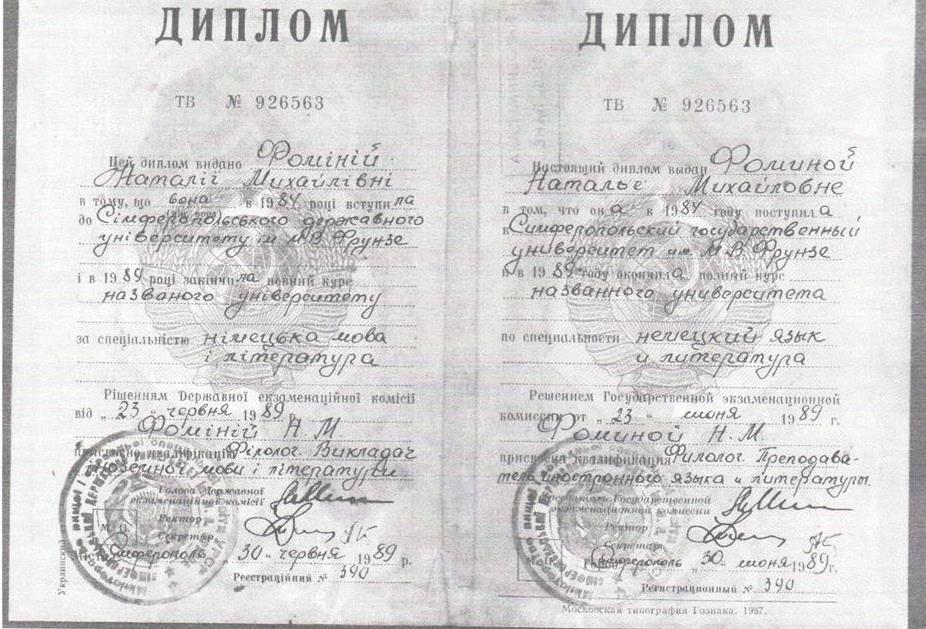 ДИПЛОМ
ТВ № 926563
Цей диплом видано Фоміній
Наталії Михайлівні
в тому, що вона в 1984 році вступила
до Сімферопольського державного
університету ім М.В. Фрунзе
і в 1989 році закінчила повний курс
названого університету
за спеціальністю німецька мова
і література
Рішенням Державної екзаменаційної комісії
від „23" червня 1989 р.
Фоміній Н.М.
присвоєно кваліфікацію Філолог. Викладач
іноземної мови і літератури
Голова Державної
екзаменаційної комісії
Ректор
Секретар
Сімферополь 30 " червня 1989 р.
Реєстраційний № 390
Украинский
ДИПЛОМ
ТВ № 926563
Настоящий диплом выдан Фоминой
Наталье Михайловне
в том, что она в 1984 году поступила
в Симферопольский государственный
университет им. М.В. Фрунзе
и в 1989 году окончила полный курс
названного университета
по специальности немецкий язык
и литература
Решением Государственной экзаменационной
комиссии от „23" июня 1989 г.
Фоминой Н.М.
присвоена квалификация Филолог. Преподава-
тель иностранного языка и литературы.
Председатель Государственной
экзаменационной комиссии
Ректор
Секретарь
Симферополь „30" июня 1989 г.
Регистрационный № 390
Московская типография Гознака. 1987.